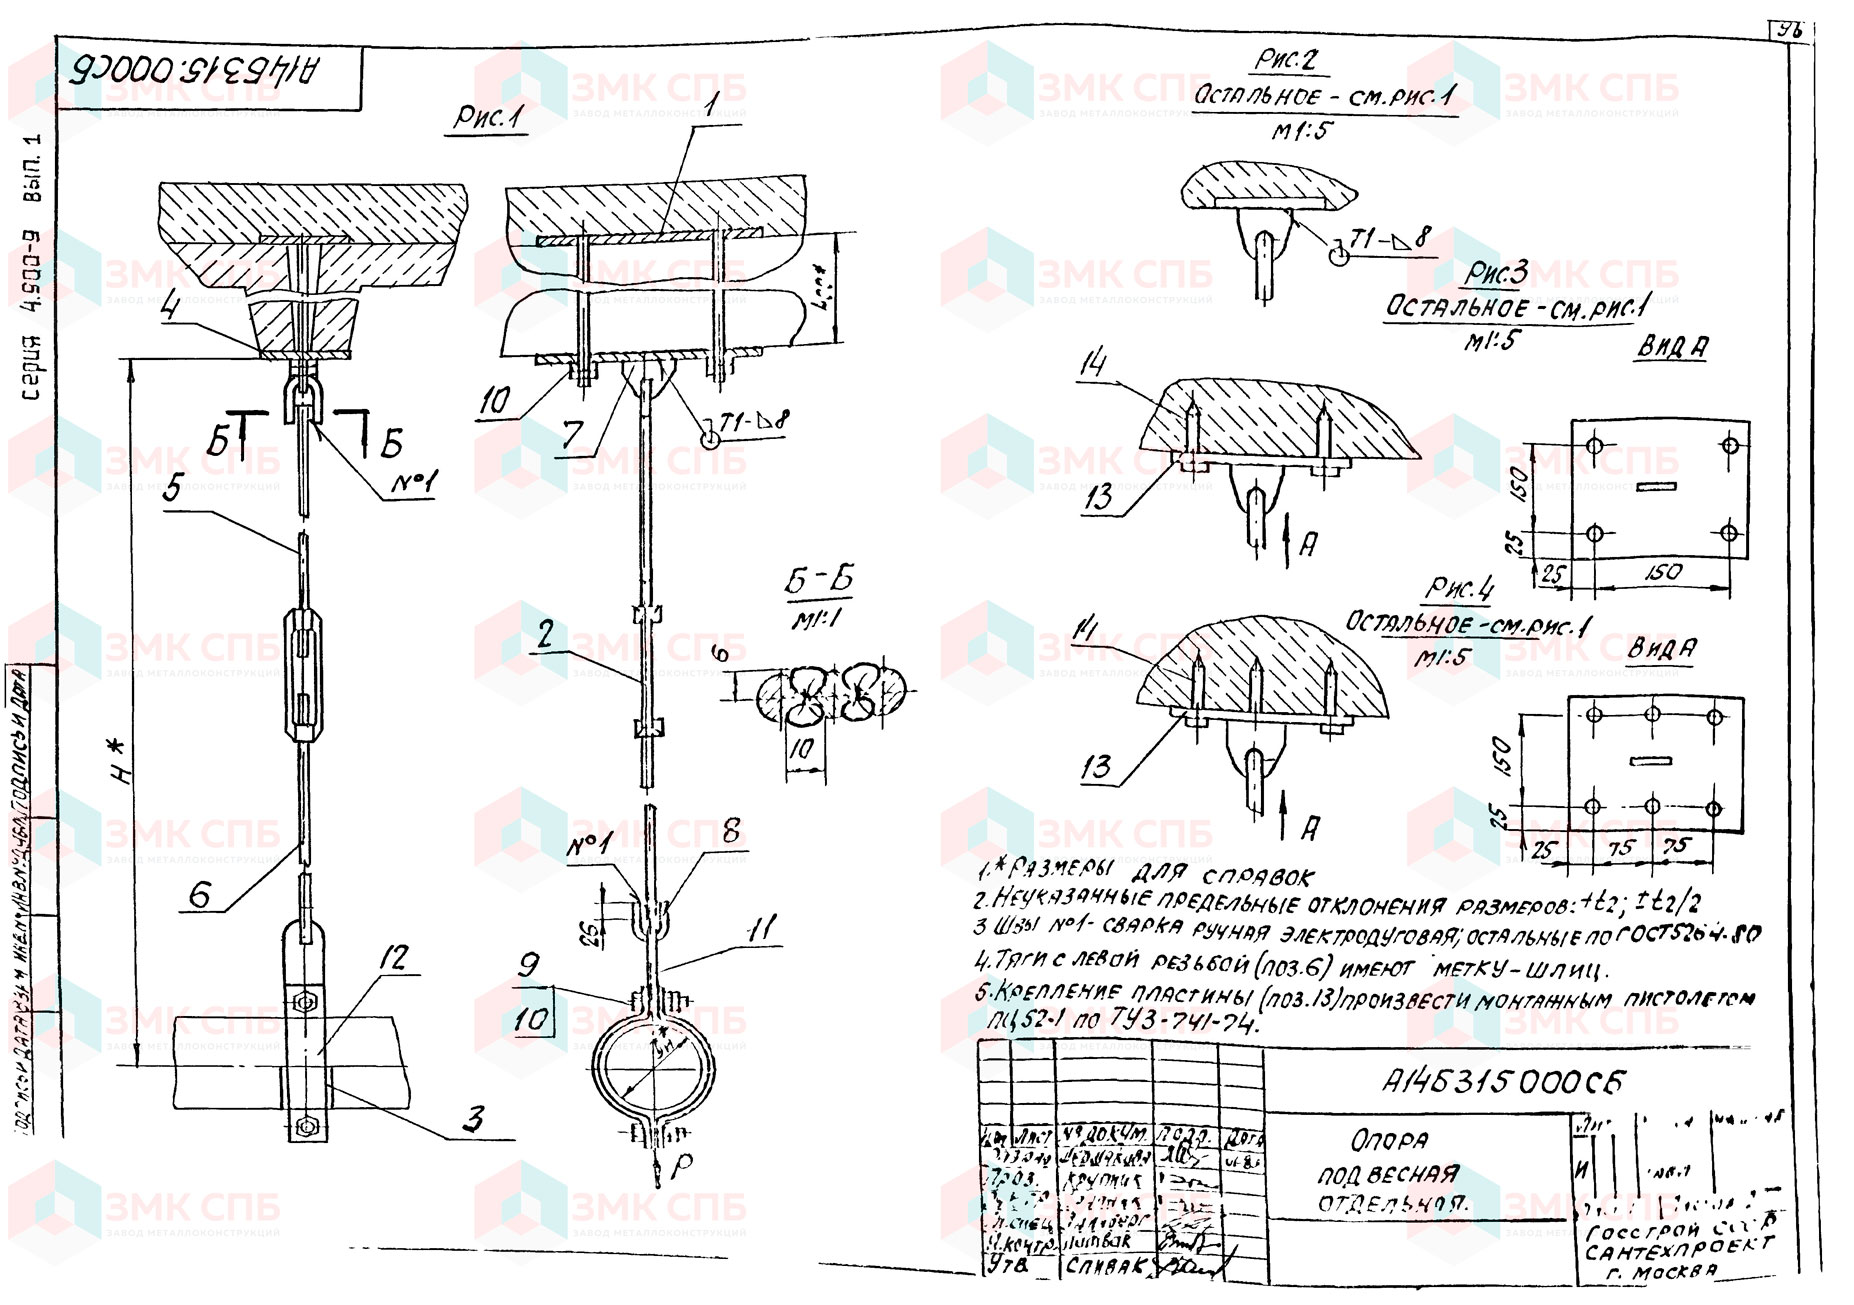 96
А14Б315.000СБ
серия 4.900-9 вып. 1
Рис.1
1
4
Б
Б
№1
5
6
12
3
Н*
10
7
Т1-⊿8
2
Б-Б
М1:1
6
10
№1
8
26
11
9
10
Р
Рис.2
Остальное - см.рис.1
М1:5
Т1-⊿8
Рис.3
Остальное - см.рис.1
М1:5
Вид А
14
13
А
150
25
25
150
Рис.4
Остальное - см.рис.1
М1:5
Вид А
14
13
А
150
25
25
75
75
1.* Размеры для справок
2. Неуказанные предельные отклонения размеров: +t2; ±t2/2
3 Швы №1- сварка ручная электродуговая; остальные по ГОСТ5264-80
4. Тяги с левой резьбой (поз.6) имеют метку-шлиц.
5. Крепление пластины (поз.13) произвести монтажным пистолетом
ПЦ52-1 по ТУ3-741-74.
А14Б315000СБ
Опора
подвесная
отдельная.
Лист № докум. Подп. Дата
Пров. Крупник
Н.контр. Литвак
Утв Спивак
И
Госстрой СССР
Сантехпроект
г. Москва
ЗМК СПБ
ЗАВОД МЕТАЛЛОКОНСТРУКЦИЙ